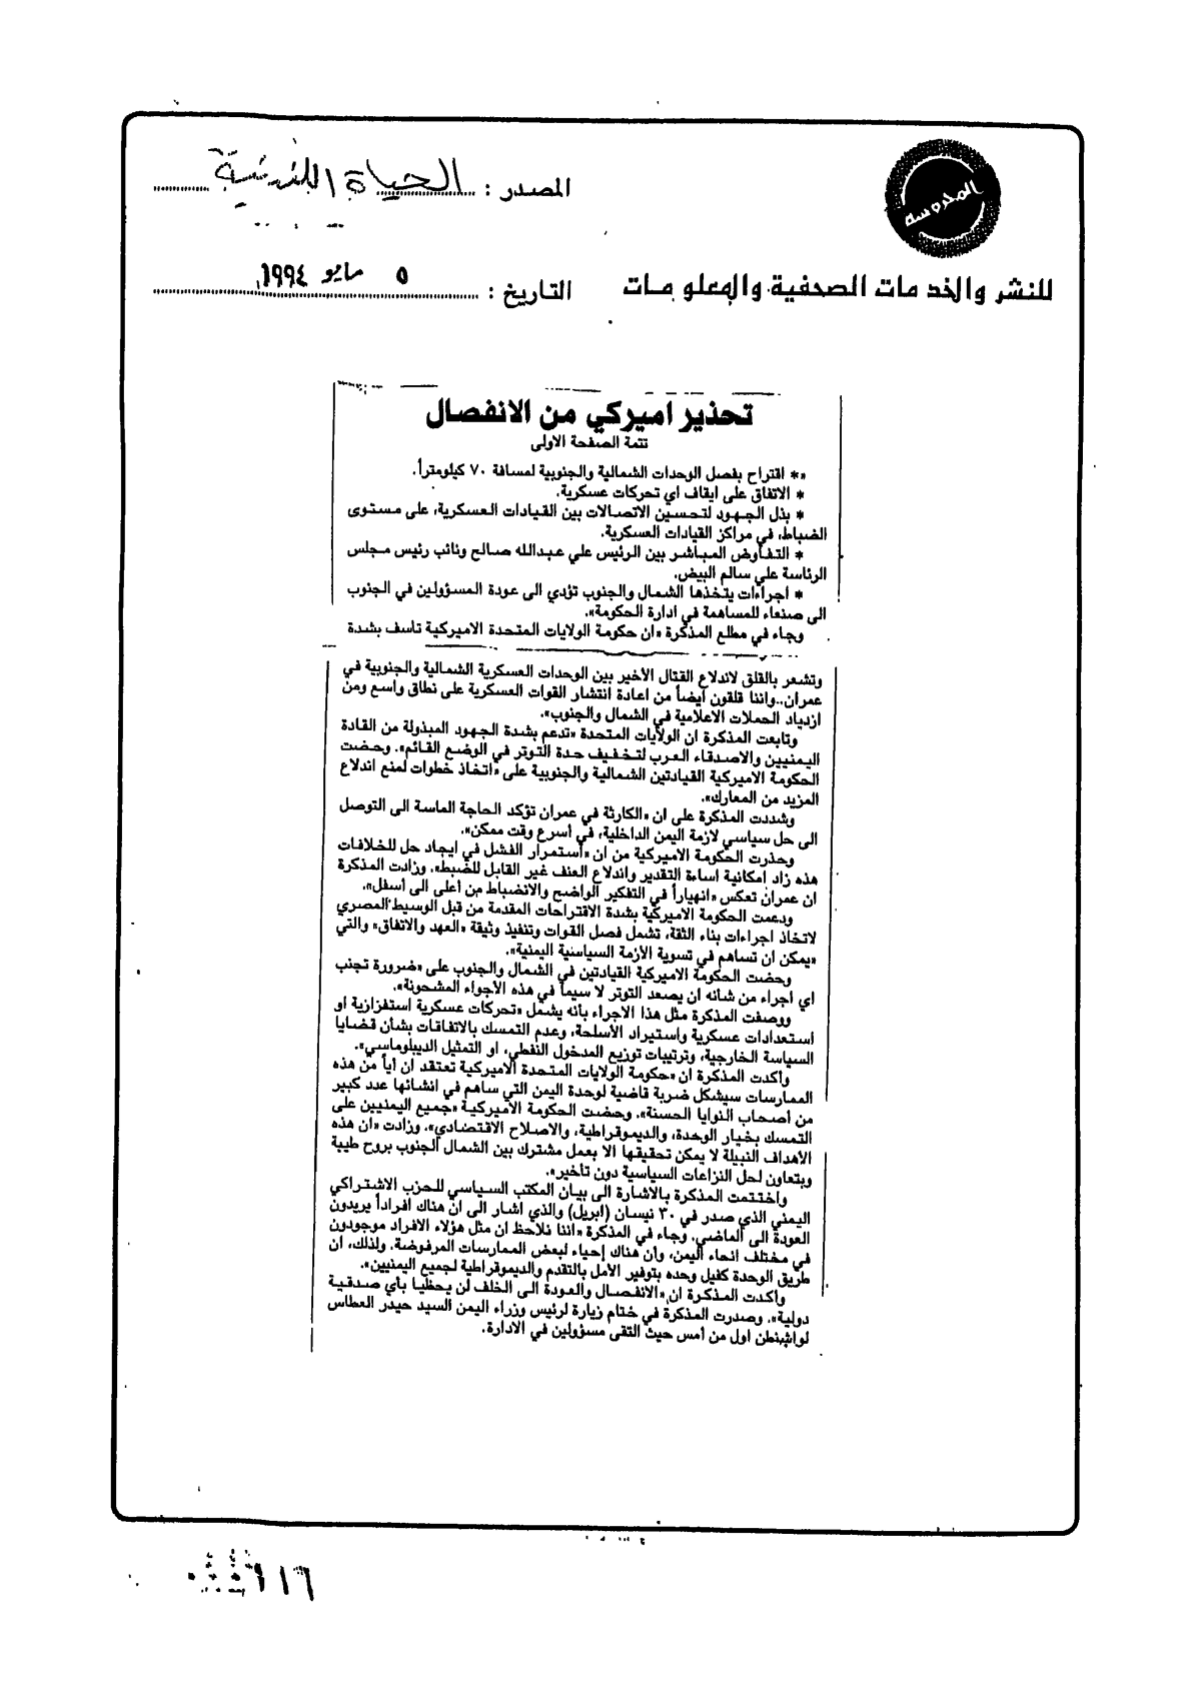 المحروسه
المصدر : الحياة اللندنية
للنشر والخدمات الصحفية والمعلومات
التاريخ : ٥ مايو ١٩٩٤
تحذير اميركي من الانفصال
تتمة الصفحة الاولى
«* اقتراح بفصل الوحدات الشمالية والجنوبية لمسافة ٧٠ كيلومتراً.
* الاتفاق على ايقاف اي تحركات عسكرية.
* بذل الجهود لتحسين الاتصالات بين القيادات العسكرية، على مستوى
الضباط، في مراكز القيادات العسكرية.
* التفاوض المباشر بين الرئيس علي عبدالله صالح ونائب رئيس مجلس
الرئاسة علي سالم البيض.
* اجراءات يتخذها الشمال والجنوب تؤدي الى عودة المسؤولين في الجنوب
الى صنعاء للمساهمة في ادارة الحكومة».
وجاء في مطلع المذكرة «ان حكومة الولايات المتحدة الاميركية تأسف بشدة
وتشعر بالقلق لاندلاع القتال الأخير بين الوحدات العسكرية الشمالية والجنوبية في
عمران..واننا قلقون أيضاً من اعادة انتشار القوات العسكرية على نطاق واسع ومن
ازدياد الحملات الاعلامية في الشمال والجنوب».
وتابعت المذكرة ان الولايات المتحدة «تدعم بشدة الجهود المبذولة من القادة
اليمنيين والاصدقاء العرب لتخفيف حدة التوتر في الوضع القائم». وحضت
الحكومة الاميركية القيادتين الشمالية والجنوبية على «اتخاذ خطوات لمنع اندلاع
المزيد من المعارك».
وشددت المذكرة على ان «الكارثة في عمران تؤكد الحاجة الماسة الى التوصل
الى حل سياسي لازمة اليمن الداخلية، في أسرع وقت ممكن».
وحذرت الحكومة الاميركية من ان «استمرار الفشل في ايجاد حل للخلافات
هذه زاد إمكانية اساءة التقدير واندلاع العنف غير القابل للضبط». وزادت المذكرة
ان عمران تعكس «انهياراً في التفكير الواضح والانضباط من أعلى الى أسفل».
ودعمت الحكومة الاميركية بشدة الاقتراحات المقدمة من قبل الوسيط المصري
لاتخاذ اجراءات بناء الثقة، تشمل فصل القوات وتنفيذ وثيقة «العهد والاتفاق» والتي
«يمكن ان تساهم في تسوية الأزمة السياسية اليمنية».
وحضت الحكومة الاميركية القيادتين في الشمال والجنوب على «ضرورة تجنب
اي اجراء من شأنه ان يصعد التوتر لا سيما في هذه الأجواء المشحونة».
ووصفت المذكرة مثل هذا الاجراء بأنه يشمل «تحركات عسكرية استفزازية او
استعدادات عسكرية واستيراد الأسلحة، وعدم التمسك بالاتفاقات بشأن قضايا
السياسة الخارجية، وترتيبات توزيع المدخول النفطي، او التمثيل الديبلوماسي».
وأكدت المذكرة ان «حكومة الولايات المتحدة الاميركية تعتقد ان أياً من هذه
الممارسات سيشكل ضربة قاضية لوحدة اليمن التي ساهم في انشائها عدد كبير
من أصحاب النوايا الحسنة». وحضت الحكومة الاميركية «جميع اليمنيين على
التمسك بخيار الوحدة، والديموقراطية، والاصلاح الاقتصادي». وزادت «ان هذه
الأهداف النبيلة لا يمكن تحقيقها الا بعمل مشترك بين الشمال الجنوب بروح طيبة
وبتعاون لحل النزاعات السياسية دون تأخير».
واختتمت المذكرة بالاشارة الى بيان المكتب السياسي للحزب الاشتراكي
اليمني الذي صدر في ٣٠ نيسان (ابريل) والذي اشار الى ان هناك افراداً يريدون
العودة الى الماضي. وجاء في المذكرة «اننا نلاحظ ان مثل هؤلاء الافراد موجودون
في مختلف انحاء اليمن، وان هناك إحياء لبعض الممارسات المرفوضة. ولذلك، ان
طريق الوحدة كفيل وحده بتوفير الأمل بالتقدم والديموقراطية لجميع اليمنيين».
وأكدت المذكرة ان «الانفصال والعودة الى الخلف لن يحظيا بأي صدقية
دولية». وصدرت المذكرة في ختام زيارة لرئيس وزراء اليمن السيد حيدر العطاس
لواشنطن اول من أمس حيث التقى مسؤولين في الادارة.